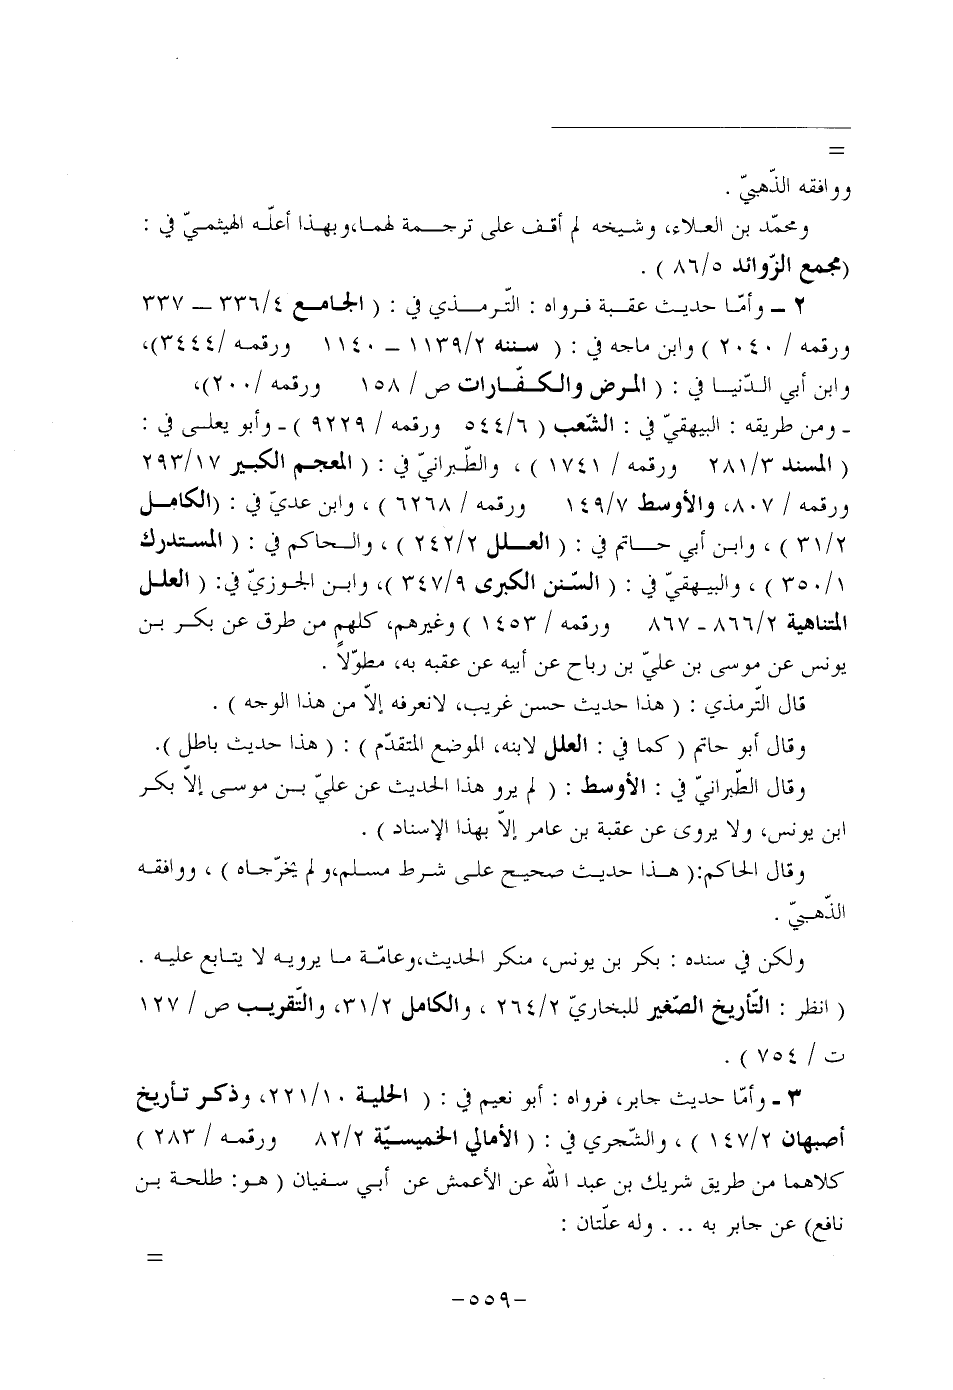 =
ووافقه الذّهبيّ .
ومحمّد بن العلاء، وشيخه لم أقف على ترجمة لهما، وبهذا أعلّه الهيثميّ في :
(مجمع الزّوائد ٨٦/٥ ) .
٢ - وأمّا حديث عقبة فرواه : التّرمذي في : ( الجامع ٣٣٦/٤ – ٣٣٧
ورقمه / ٢٠٤٠ ) وابن ماجه في : ( سننه ١١٣٩/٢ – ١١٤٠ ورقمه /٣٤٤٤)،
وابن أبي الدّنيا في : ( المرض والكفّارات ص / ١٥٨ ورقمه /٢٠٠)،
- ومن طريقه : البيهقيّ في : الشّعب ( ٥٤٤/٦ ورقمه / ٩٢٢٩ ) - وأبو يعلى في :
( المسند ٢٨١/٣ ورقمه / ١٧٤١ ) ، والطّبرانيّ في : ( المعجم الكبير ٢٩٣/١٧
ورقمه / ٨٠٧، والأوسط ١٤٩/٧ ورقمه / ٦٢٦٨ ) ، وابن عديّ في : (الكامل
٣١/٢ ) ، وابن أبي حاتم في : ( العلل ٢٤٢/٢ ) ، والحاكم في : ( المستدرك
٣٥٠/١ ) ، والبيهقيّ في : ( السّنن الكبرى ٣٤٧/٩ )، وابن الجوزيّ في: ( العلل
المتناهية ٨٦٦/٢ - ٨٦٧ ورقمه / ١٤٥٣ ) وغيرهم، كلهم من طرق عن بكر بن
يونس عن موسى بن عليّ بن رباح عن أبيه عن عقبه به، مطوّلاً .
قال التّرمذي : ( هذا حديث حسن غريب، لانعرفه إلاّ من هذا الوجه ) .
وقال أبو حاتم ( كما في : العلل لابنه، الموضع المتقدّم ) : ( هذا حديث باطل ).
وقال الطّبرانيّ في : الأوسط : ( لم يرو هذا الحديث عن عليّ بن موسى إلاّ بكر
ابن يونس، ولا يروى عن عقبة بن عامر إلاّ بهذا الإسناد ) .
وقال الحاكم:( هذا حديث صحيح على شرط مسلم،و لم يخرّجاه ) ، ووافقه
الذّهبيّ .
ولكن في سنده : بكر بن يونس، منكر الحديث،وعامّة ما يرويه لا يتابع عليه .
( انظر : التّأريخ الصّغير للبخاريّ ٢٦٤/٢ ، والكامل ٣١/٢، والتّقريب ص / ١٢٧
ت / ٧٥٤ ) .
٣ - وأمّا حديث جابر، فرواه : أبو نعيم في : ( الحلية ٢٢١/١٠، وذكر تأريخ
أصبهان ١٤٧/٢ ) ، والشّجري في : ( الأمالي الخميسيّة ٨٢/٢ ورقمه / ٢٨٣ )
كلاهما من طريق شريك بن عبد الله عن الأعمش عن أبي سفيان ( هو: طلحة بن
نافع) عن جابر به .. . وله علّتان :
=
-٥٥٩-